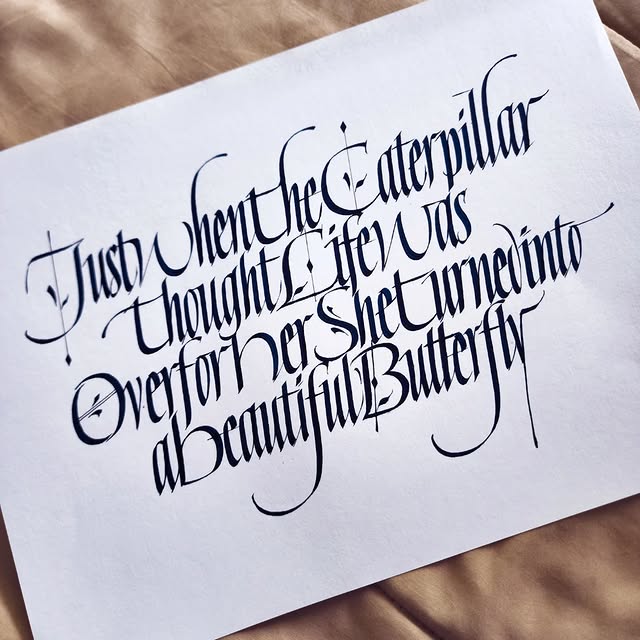 Just when the Caterpillar
thought Life was
Over for her She turned into
a beautiful Butterfly